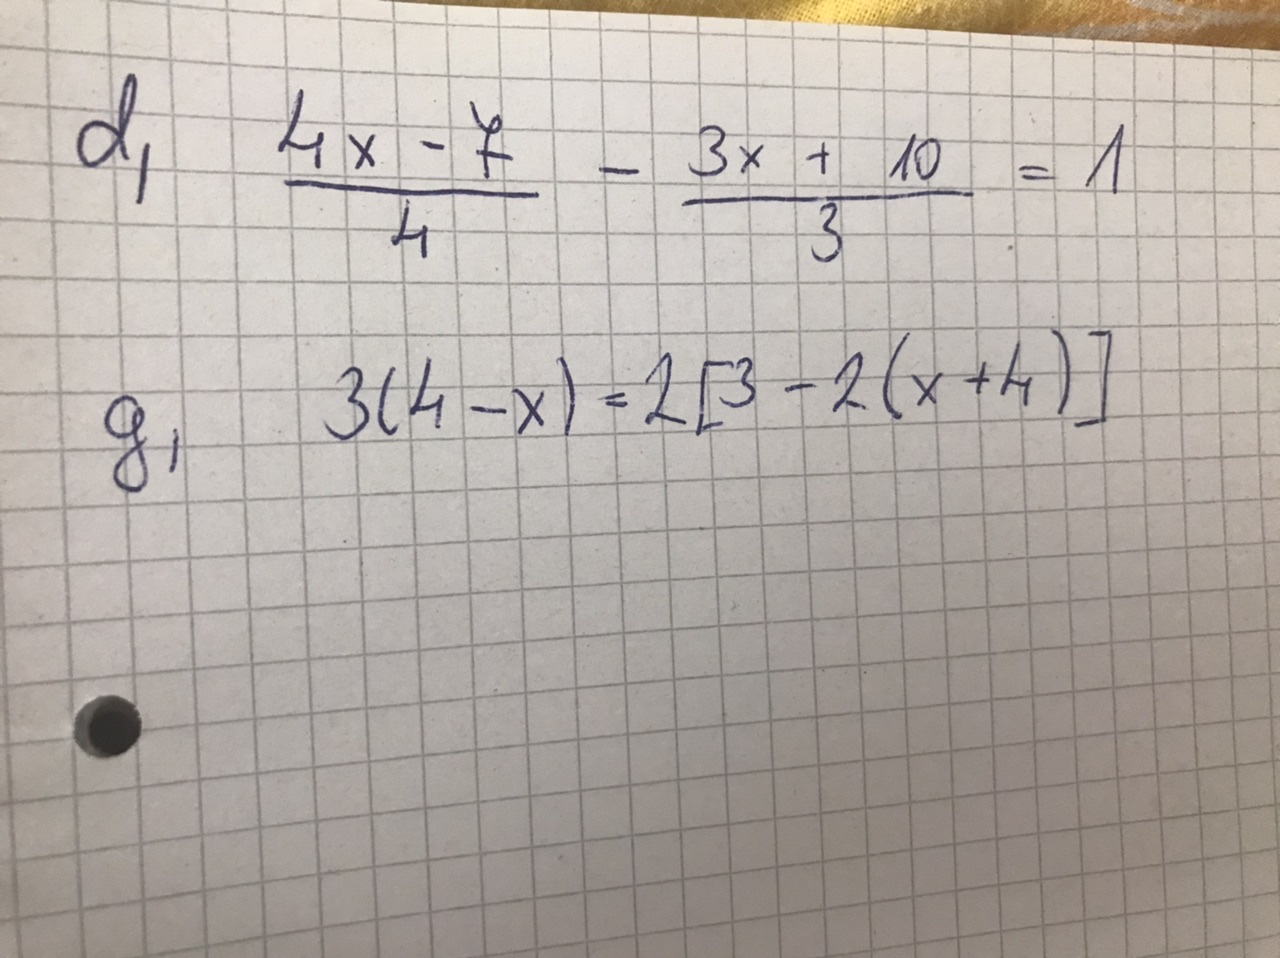 d, (4x - 7)/4 - (3x + 10)/3 = 1
g, 3(4 - x) = 2[3 - 2(x + 4)]